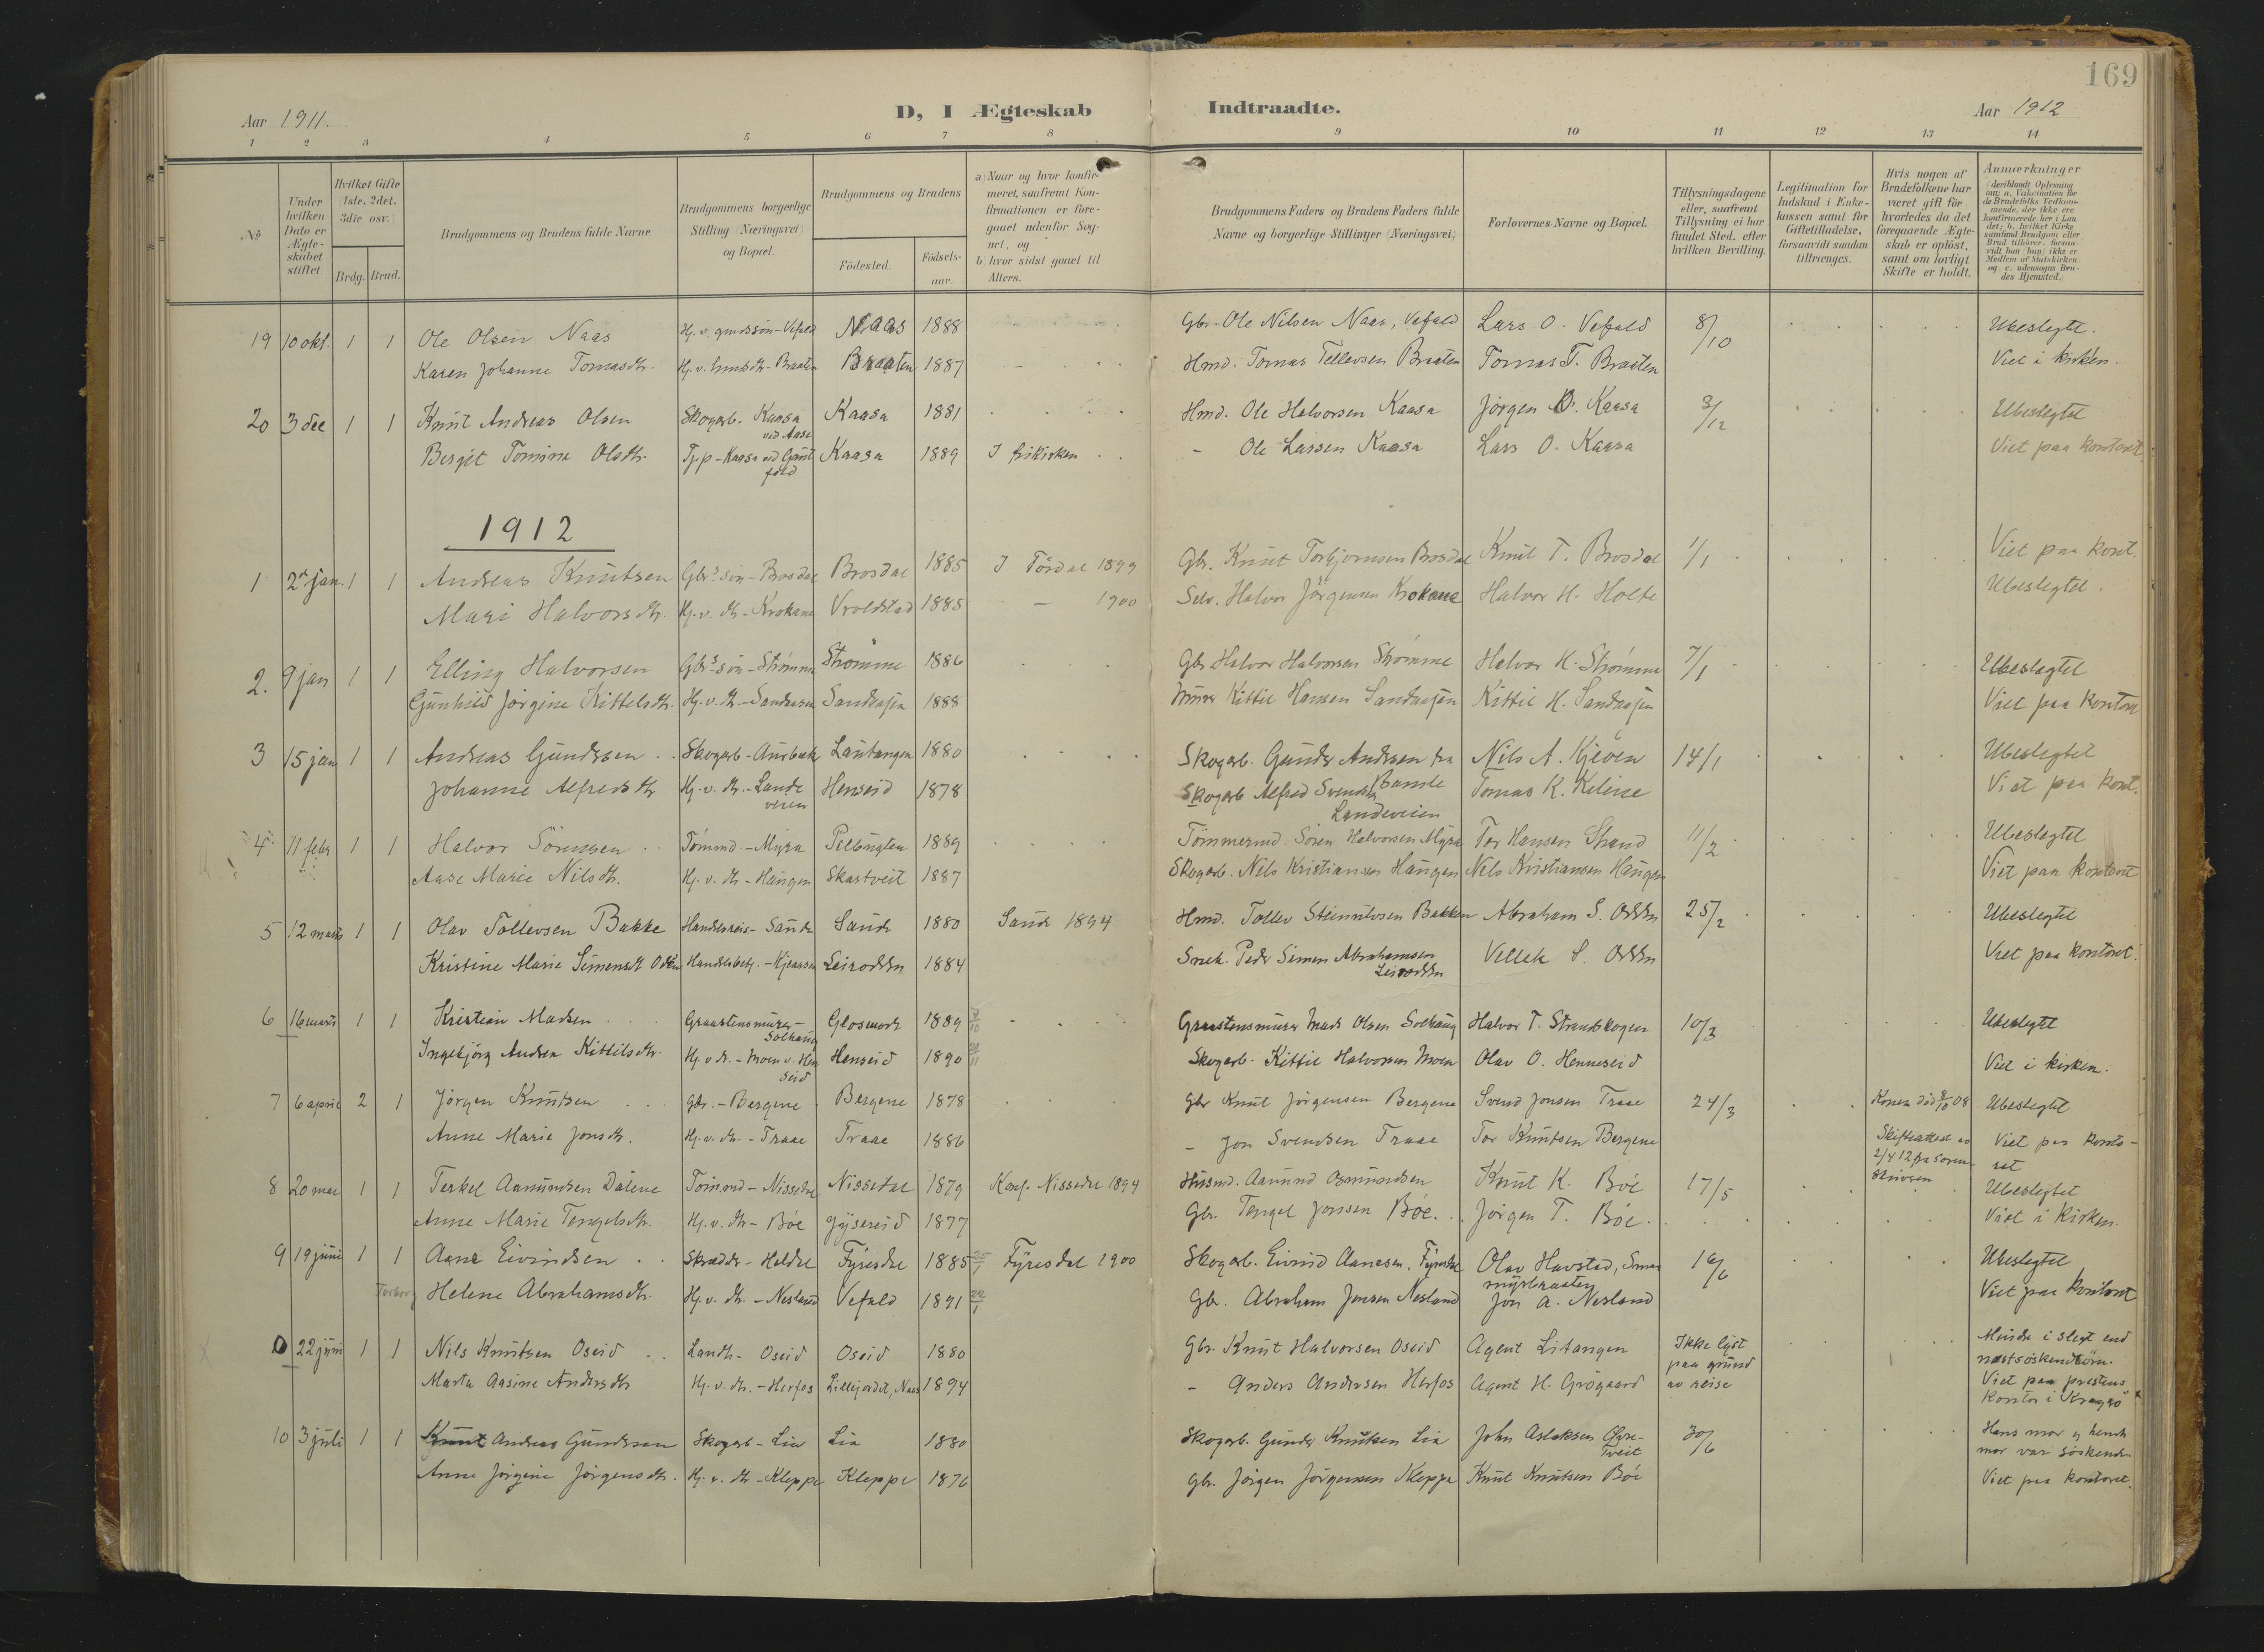 169
Aar 1911.
D, I Ægteskab Indtraadte.
Aar 1912
1 2 3 4 5 6 7 8 9 10 11 12 13 14
No
Under hvilken Dato er Ægteskabet stiftet.
Hvilket Gifte 1ste, 2det, 3die osv.)
Brdg. Brud.
Brudgommens og Brudens fulde Navne
Brudgommens borgerlige Stilling (Næringsvei) og Bopæl.
Brudgommens og Brudens
Födested.
Födsels-aar.
a) Naar og hvor konfirmeret, saafremt Konfirmationen er foregaaet udenfor Sognet, og
b) hvor sidst gaaet til Alters.
Brudgommens Faders og Brudens Faders fulde Navne og borgerlige Stillinger (Næringsvei)
Forlovernes Navne og Bopæl.
Tillysningsdagene eller, saafremt Tillysning ei har fundet Sted, efter hvilken Bevilling.
Legitimation for Indskud i Enkekassen samt for Giftetilladelse, forsaavidt saadan tiltrænges.
Hvis nogen af Brudefolkene har været gift för hvorledes da det foregaaende Ægteskab er oplöst, samt om lovligt Skifte er holdt.
Anmærkninger
19 10 okt. 1 1 Ole Olsen Naas Naas 1888 Gbr. Ole Nilsen Naas, Vefald Lars O. Vefald 8/10 Ubeslegte.
Karen Johanne Tomasdtr. Braaten 1887 Hmd. Tomas Tellevsen Braaten Tomas T. Braaten Viet i kirken.
20 3 dec 1 1 Knut Andreas Olsen Skogarb. Kaasa ved Aase Kaasa 1881 Hmd. Ole Halvorsen Kaasa Jørgen O. Kaasa 3/12 Ubeslegtet
Berget Tomine Olsdtr. Kaasa 1889 I frikirken - Ole Larsen Kaasa Lars O. Kaasa Viet paa kontoret
1912
1 2 jan. 1 1 Andreas Knutsen Gbrs søn - Brosdal Brosdal 1885 I Tørdal 1899 Gbr. Knut Torbjørnsen Brosdal Knut T. Brosdal 1/1 Viet paa kont.
Mari Halvorsdtr. Hj. v. dtr. - Krokane Vroldstad 1885 - 1900 Selv. Halvor Jørgensen Krokane Halvor H. Holte Ubeslegtet.
2. 9 jan 1 1 Elling Halvorsen Gbrs søn - Strømme Strømme 1886 Gbr Halvor Halvorsen Strømme Halvor H. Strømme 7/1 Ubeslegtet
Gunhild Jørgine Kittelsdtr. 1888 Murer Kittil Hansen Kittil H. Viet paa kontoret
3 15 jan 1 1 Andreas Gundersen Skogarb - Aurbæk Lautangen 1880 Skogarb. Gunder Andersen fra Bamle Nils A. Kjeven 14/1 Ubeslegtet
Johanne Alfredsdtr Hj. v. dtr. - Landeveien Henseid 1878 Skogarb Alfred Svendsen Landeveien Tomas K. Viet paa kont.
4 11 febr 1 1 Halvor Sørensen Tømmd - Myra 1889 Tømmermd. Søren Halvorsen Myra Tor Hansen Strand 11/2 Ubeslegtet
Aase Marie Nilsdtr. Hj. v. dtr - Haugen Skartveit 1887 Skogarb. Nils Kristiansen Haugen Nils Kristiansen Haugen Viet paa kontoret
5 12 marts 1 1 Olav Tollevsen Bakke Handelsreis - Sande Sande 1880 Sande 1894 Hmd. Tollev Steinulvsen Bakken Abraham S. Odden 25/2 Ubeslegtet
Kristine Marie Simensdt Odden Handelsbetj. - Leirodden 1884 Snek. Peder Simen Abrahamsen Leirodden Vellek S. Odden Viet paa kontoret.
6 16 marts 1 1 Kristian Madsen Graastensmurer - Solhaug Glosmork 1889 Graastensmurer Mads Olsen Solhaug Halvor T. Strandskogen 10/3 Ubeslegtet
Ingebjørg Andrea Kittilsdtr. Hj. v. dr. - Moen v. Henseid Henseid 1890 Skogarb. Kittil Halvorsen Moen Olav O. Henneseid Viet i kirken.
7 6 april 2 1 Jørgen Knutsen Gbr. - Bergene Bergene 1878 Gbr Knut Jørgensen Bergene Svend Jonsen Traae 24/3 Konen død 8/10 08 Ubeslegtet
Anne Marie Jonsdtr. Hj. v. dtr. - Traae Traae 1886 - Jon Svendsen Traae Tor Knutsen Bergene Skifteattest av 2/4 12 fra sorenskriveren Viet paa kontoret
8 20 mai 1 1 Terkel Aanundsen Dalene Tømmd - Nissedal Nissedal 1879 Konf. Nissedal 1894 Husmd. Aanund Knut K. Bøe 17/5 Ubeslegtet
Anne Marie Tengelsdtr. Hj. v. dtr - Bøe 1877 Gbr. Tengel Jonsen Bøe. Jørgen T. Bøe. Viet i kirken.
9 19 juni 1 1 Aane Eivindsen Skrædder - Fyresdal 1885 Fyresdal 1900 Skogarb. Eivind Aanesen, Fyresdal Olav Havstad, 16/6 Ubeslegtet
Torborg Helene Abrahamsdtr. Hj. v. dtr. - Nesland Vefald 1891 Gbr. Abraham Jensen Nesland Jon A. Nesland Viet paa kontoret
22 juni 1 1 Nils Knutsen Oseid Landh - Oseid Oseid 1880 Gbr. Knut Halvorsen Oseid Agent Litangen Ikke lyst paa grund av reise Mindre i slegt end næstsøskendebørn.
Marta Aasine Andersdtr Hj. v. dtr. - Herfos Lillejordet, Naas 1894 - Anders Andersen Herfos Agent H. Grøgaard Viet paa prestens kontor i Kragerø
10 3 juli 1 1 Knut Andreas Gundersen Skogarb - Lia Lia 1880 Skogarb. Gunder Knutsen Lia John Aslaksen 30/6 Hans mor og hendes mor var søskende
Anne Jørgine Jørgensdtr. Hj. v. dtr - Kleppe Kleppe 1876 Gbr. Jørgen Jørgensen Kleppe Knut Knutsen Bøe Viet paa kontoret.